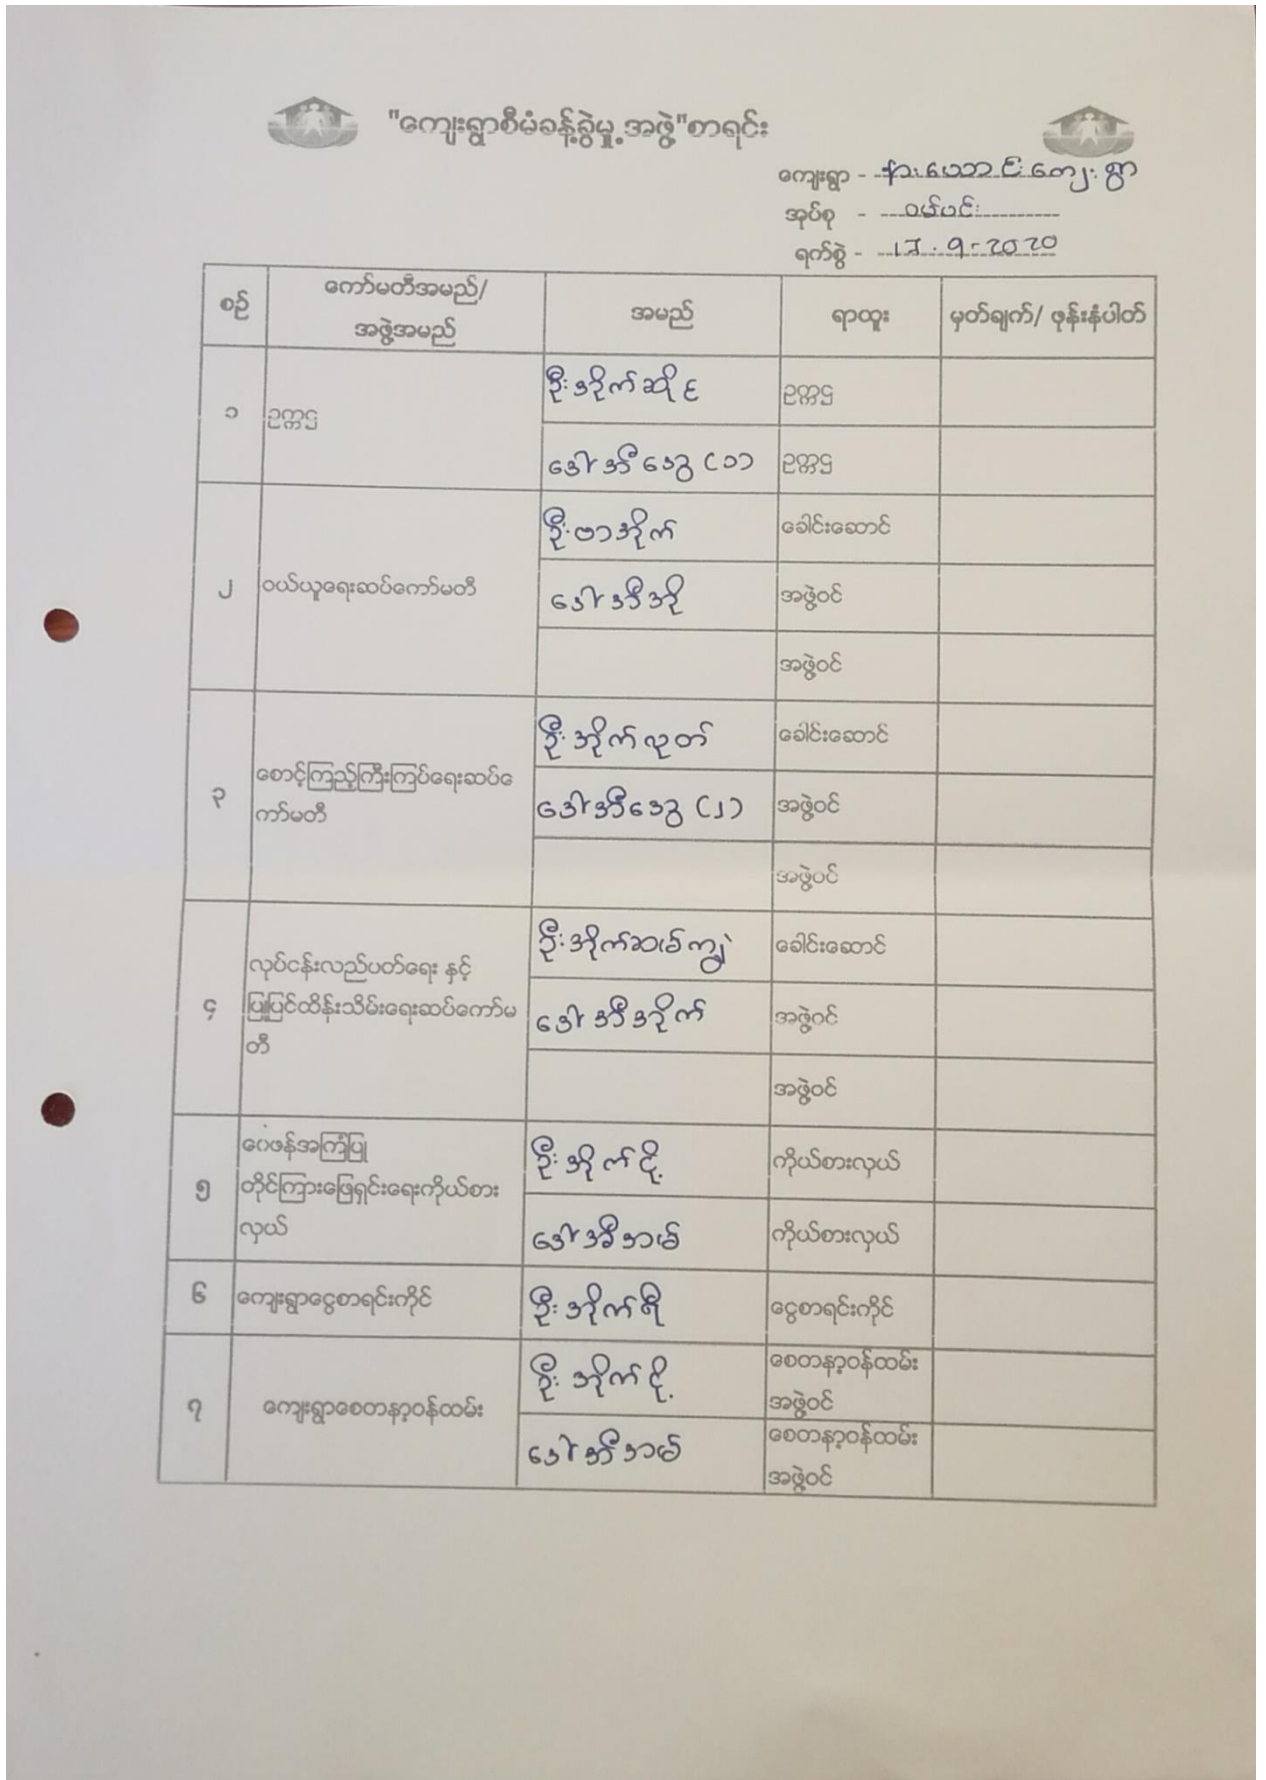 "ကျေးရွာစီမံခန့်ခွဲမှု့အဖွဲ့"စာရင်း
ကျေးရွာ - နားယောင်းကျေးရွာ
အုပ်စု - ဝမ်ပင်း
ရက်စွဲ - 17-9-2020
စဉ် ကော်မတီအမည်/ အဖွဲ့အမည် အမည် ရာထူး မှတ်ချက်/ ဖုန်းနံပါတ်
၁ ဥက္ကဌ
ဦးအိုက်ဆိုင် ဥက္ကဌ
ဒေါ်အီဒွေ (၁) ဥက္ကဌ
၂ ဝယ်ယူရေးဆပ်ကော်မတီ
ဦးဗာအိုက် ခေါင်းဆောင်
ဒေါ်အီအို အဖွဲ့ဝင်
အဖွဲ့ဝင်
၃ စောင့်ကြည့်ကြီးကြပ်ရေးဆပ်ကော်မတီ
ဦးအိုက်လုတ် ခေါင်းဆောင်
ဒေါ်အီဒွေ (၂) အဖွဲ့ဝင်
အဖွဲ့ဝင်
၄ လုပ်ငန်းလည်ပတ်ရေး နှင့်
ပြုပြင်ထိန်းသိမ်းရေးဆပ်ကော်မ
တီ
ဦးအိုက်ဆမ်ကျွဲ ခေါင်းဆောင်
ဒေါ်အီအိုက် အဖွဲ့ဝင်
အဖွဲ့ဝင်
၅ ဝေဖန်အကြံပြု
တိုင်ကြားဖြေရှင်းရေးကိုယ်စား
လှယ်
ဦးအိုက်ငို့ ကိုယ်စားလှယ်
ဒေါ်အီအမ် ကိုယ်စားလှယ်
၆ ကျေးရွာငွေစာရင်းကိုင် ဦးအိုက်ရီ ငွေစာရင်းကိုင်
၇ ကျေးရွာစေတနာ့ဝန်ထမ်း
ဦးအိုက်ငို့ စေတနာ့ဝန်ထမ်း
အဖွဲ့ဝင်
ဒေါ်အီအမ် စေတနာ့ဝန်ထမ်း
အဖွဲ့ဝင်